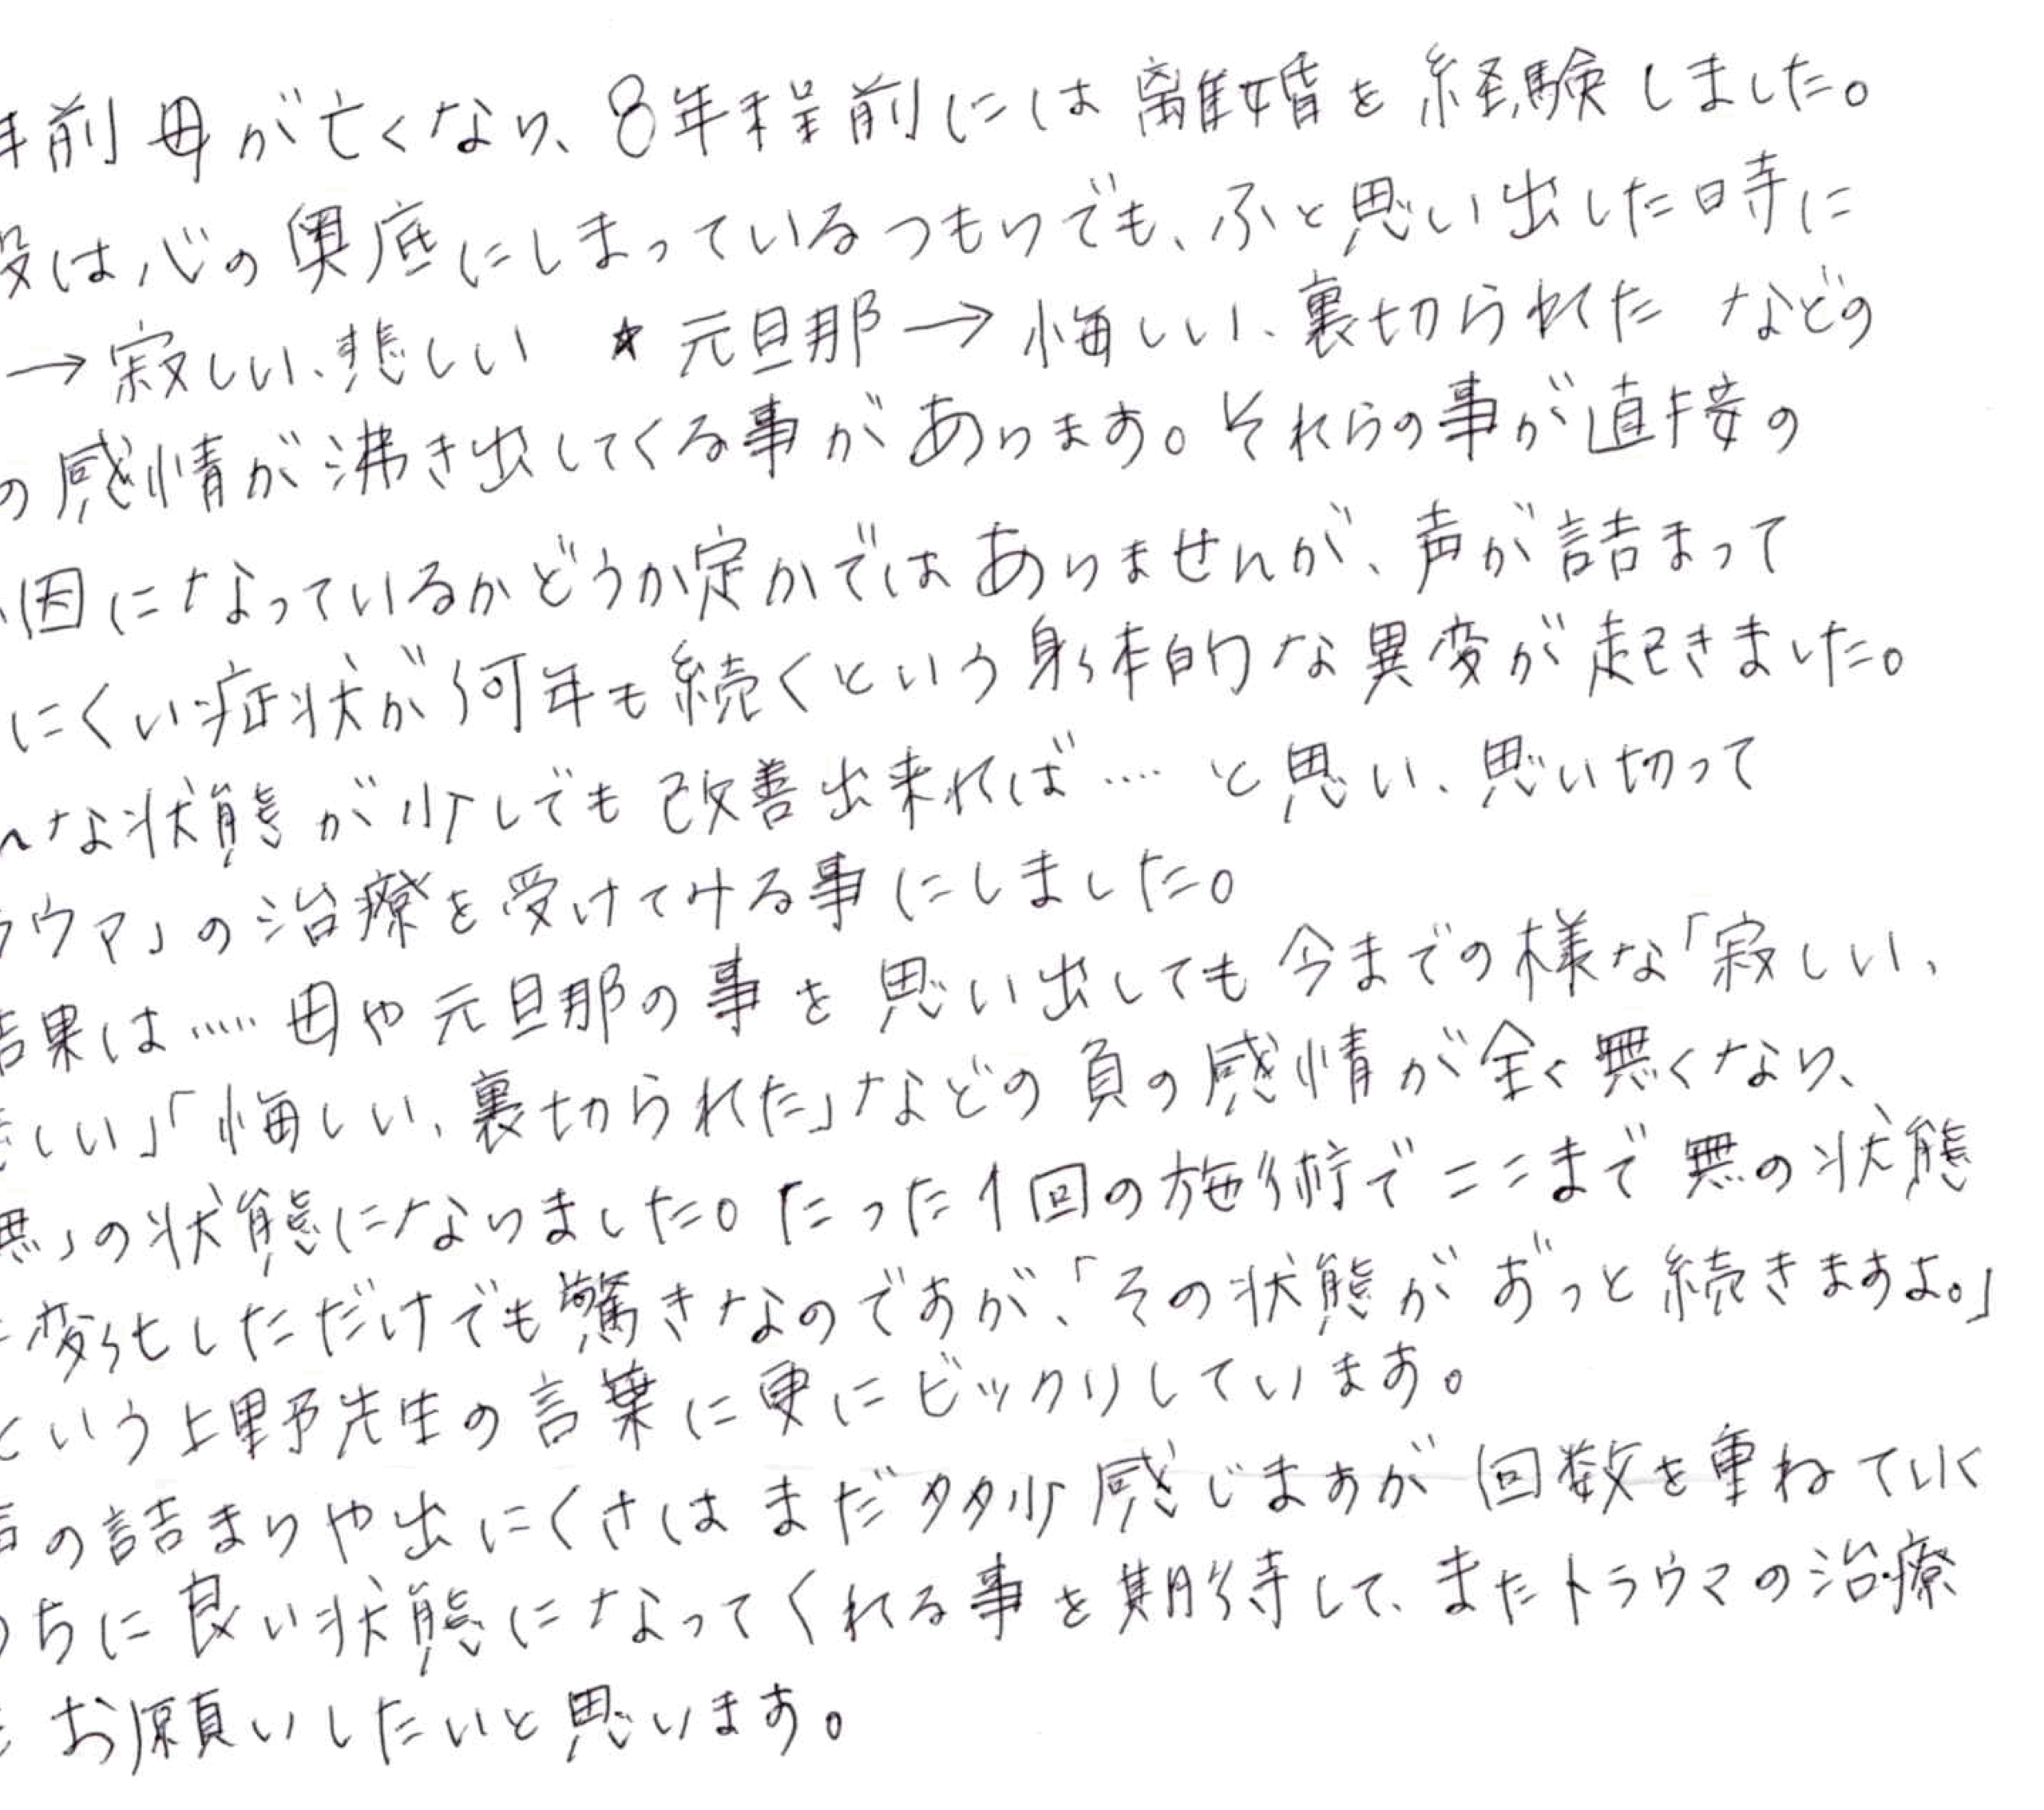 年前母が亡くなり、8年程前には離婚を経験しました。
段は心の奥底にしまっているつもりでも、ふと思い出した時に
→寂しい、悲しい ★元旦那→悔しい、裏切られた などの
の感情が沸き出してくる事があります。それらの事が直接の
因になっているかどうか定かではありませんが、声が詰まって
にくい症状が何年も続くという身体的な異変が起きました。
んな状態が少しでも改善出来れば…. と思い、思い切って
ラウマ」の治療を受けてみる事にしました。
結果は…..母や元旦那の事を思い出しても今までの様な「寂しい、
しい」「悔しい、裏切られた」などの負の感情が全く無くなり、
無」の状態になりました。たった1回の施術でここまで無の状態
に変化しただけでも驚きなのですが、「その状態がずっと続きますよ。」
という上野先生の言葉に更にビックリしています。
声の詰まりや出にくさはまだ多少感じますが回数を重ねていく
うちに良い状態になってくれる事を期待して、またトラウマの治療
をお願いしたいと思います。